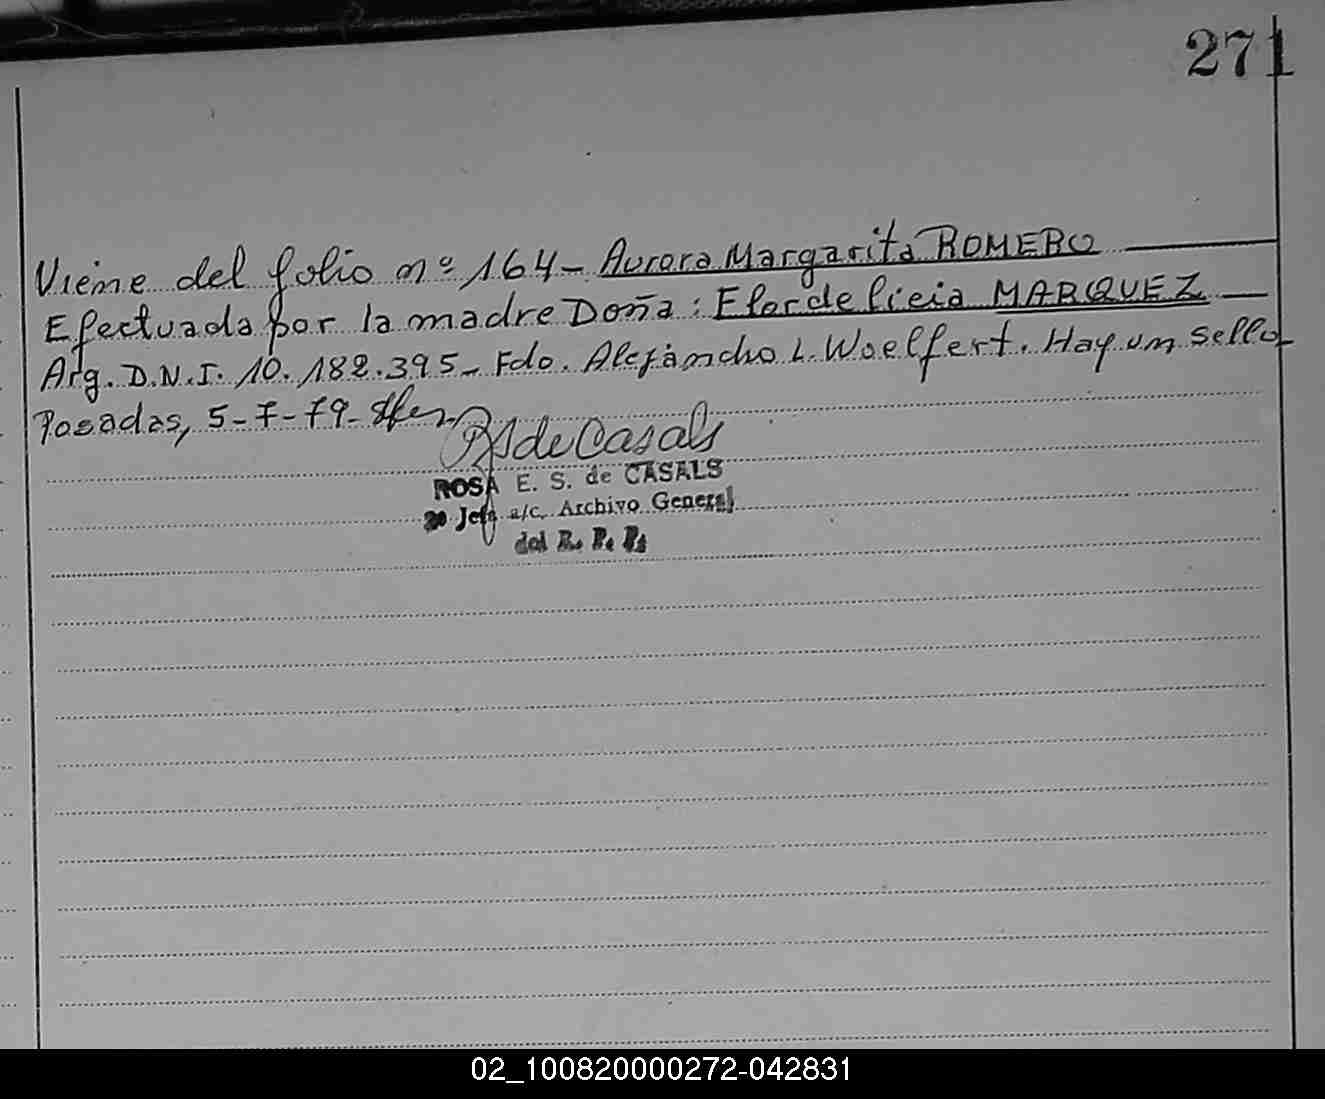 271
Viene del folio nº 164- Aurora Margarita ROMERO
Efectuada por la madre Doña: Flordelicia MARQUEZ
Arg. D.N.I. 10.182.395- Fdo. Alejandro L. Woelfert. Hay un sello
Posadas, 5-7-79-
RSdeCasals
ROSA E. S. de CASALS
Jefe a/c. Archivo General
del R. P. P.
02_100820000272-042831